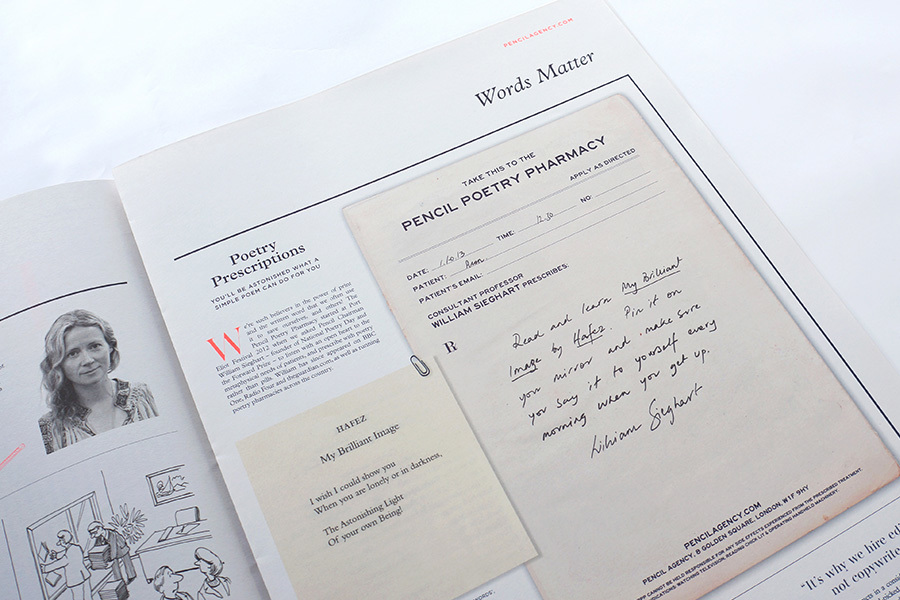 PENCILAGENCY.COM
Words Matter
Poetry
Prescriptions
YOU'LL BE ASTONISHED WHAT A
SIMPLE POEM CAN DO FOR YOU
We're such believers in the power of print
and the written word that we often use
it to save ourselves, and others! The
Pencil Poetry Pharmacy started at Port
Eliot Festival 2012 when we asked Pencil Chairman,
William Sieghart – founder of National Poetry Day and
the Forward Prize – to listen with an open heart to the
metaphysical needs of patients, and prescribe with poetry
rather than pills. William has since appeared on BBC
One, Radio Four and theguardian.com, as well as running
poetry pharmacies across the country.
HAFEZ
My Brilliant Image
I wish I could show you
When you are lonely or in darkness,
The Astonishing Light
Of your own Being!
TAKE THIS TO THE
PENCIL POETRY PHARMACY
APPLY AS DIRECTED
DATE: 1.10.13 TIME: 12.30 NO:
PATIENT:
PATIENT'S EMAIL:
CONSULTANT PROFESSOR
WILLIAM SIEGHART PRESCRIBES:
R
Read and learn My Brilliant
Image by Hafez. Pin it on
you mirror and make sure
you say it to yourself every
morning when you get up.
William Sieghart
PENCILAGENCY.COM
PENCIL AGENCY, 8 GOLDEN SQUARE, LONDON, W1F 9HY
CANNOT BE HELD RESPONSIBLE FOR ANY SIDE EFFECTS EXPERIENCED FROM THE PRESCRIBED TREATMENT.
WATCHING TELEVISION, READING CHICK LIT & OPERATING HANDHELD MACHINERY
"It's why we hire
not copywrite